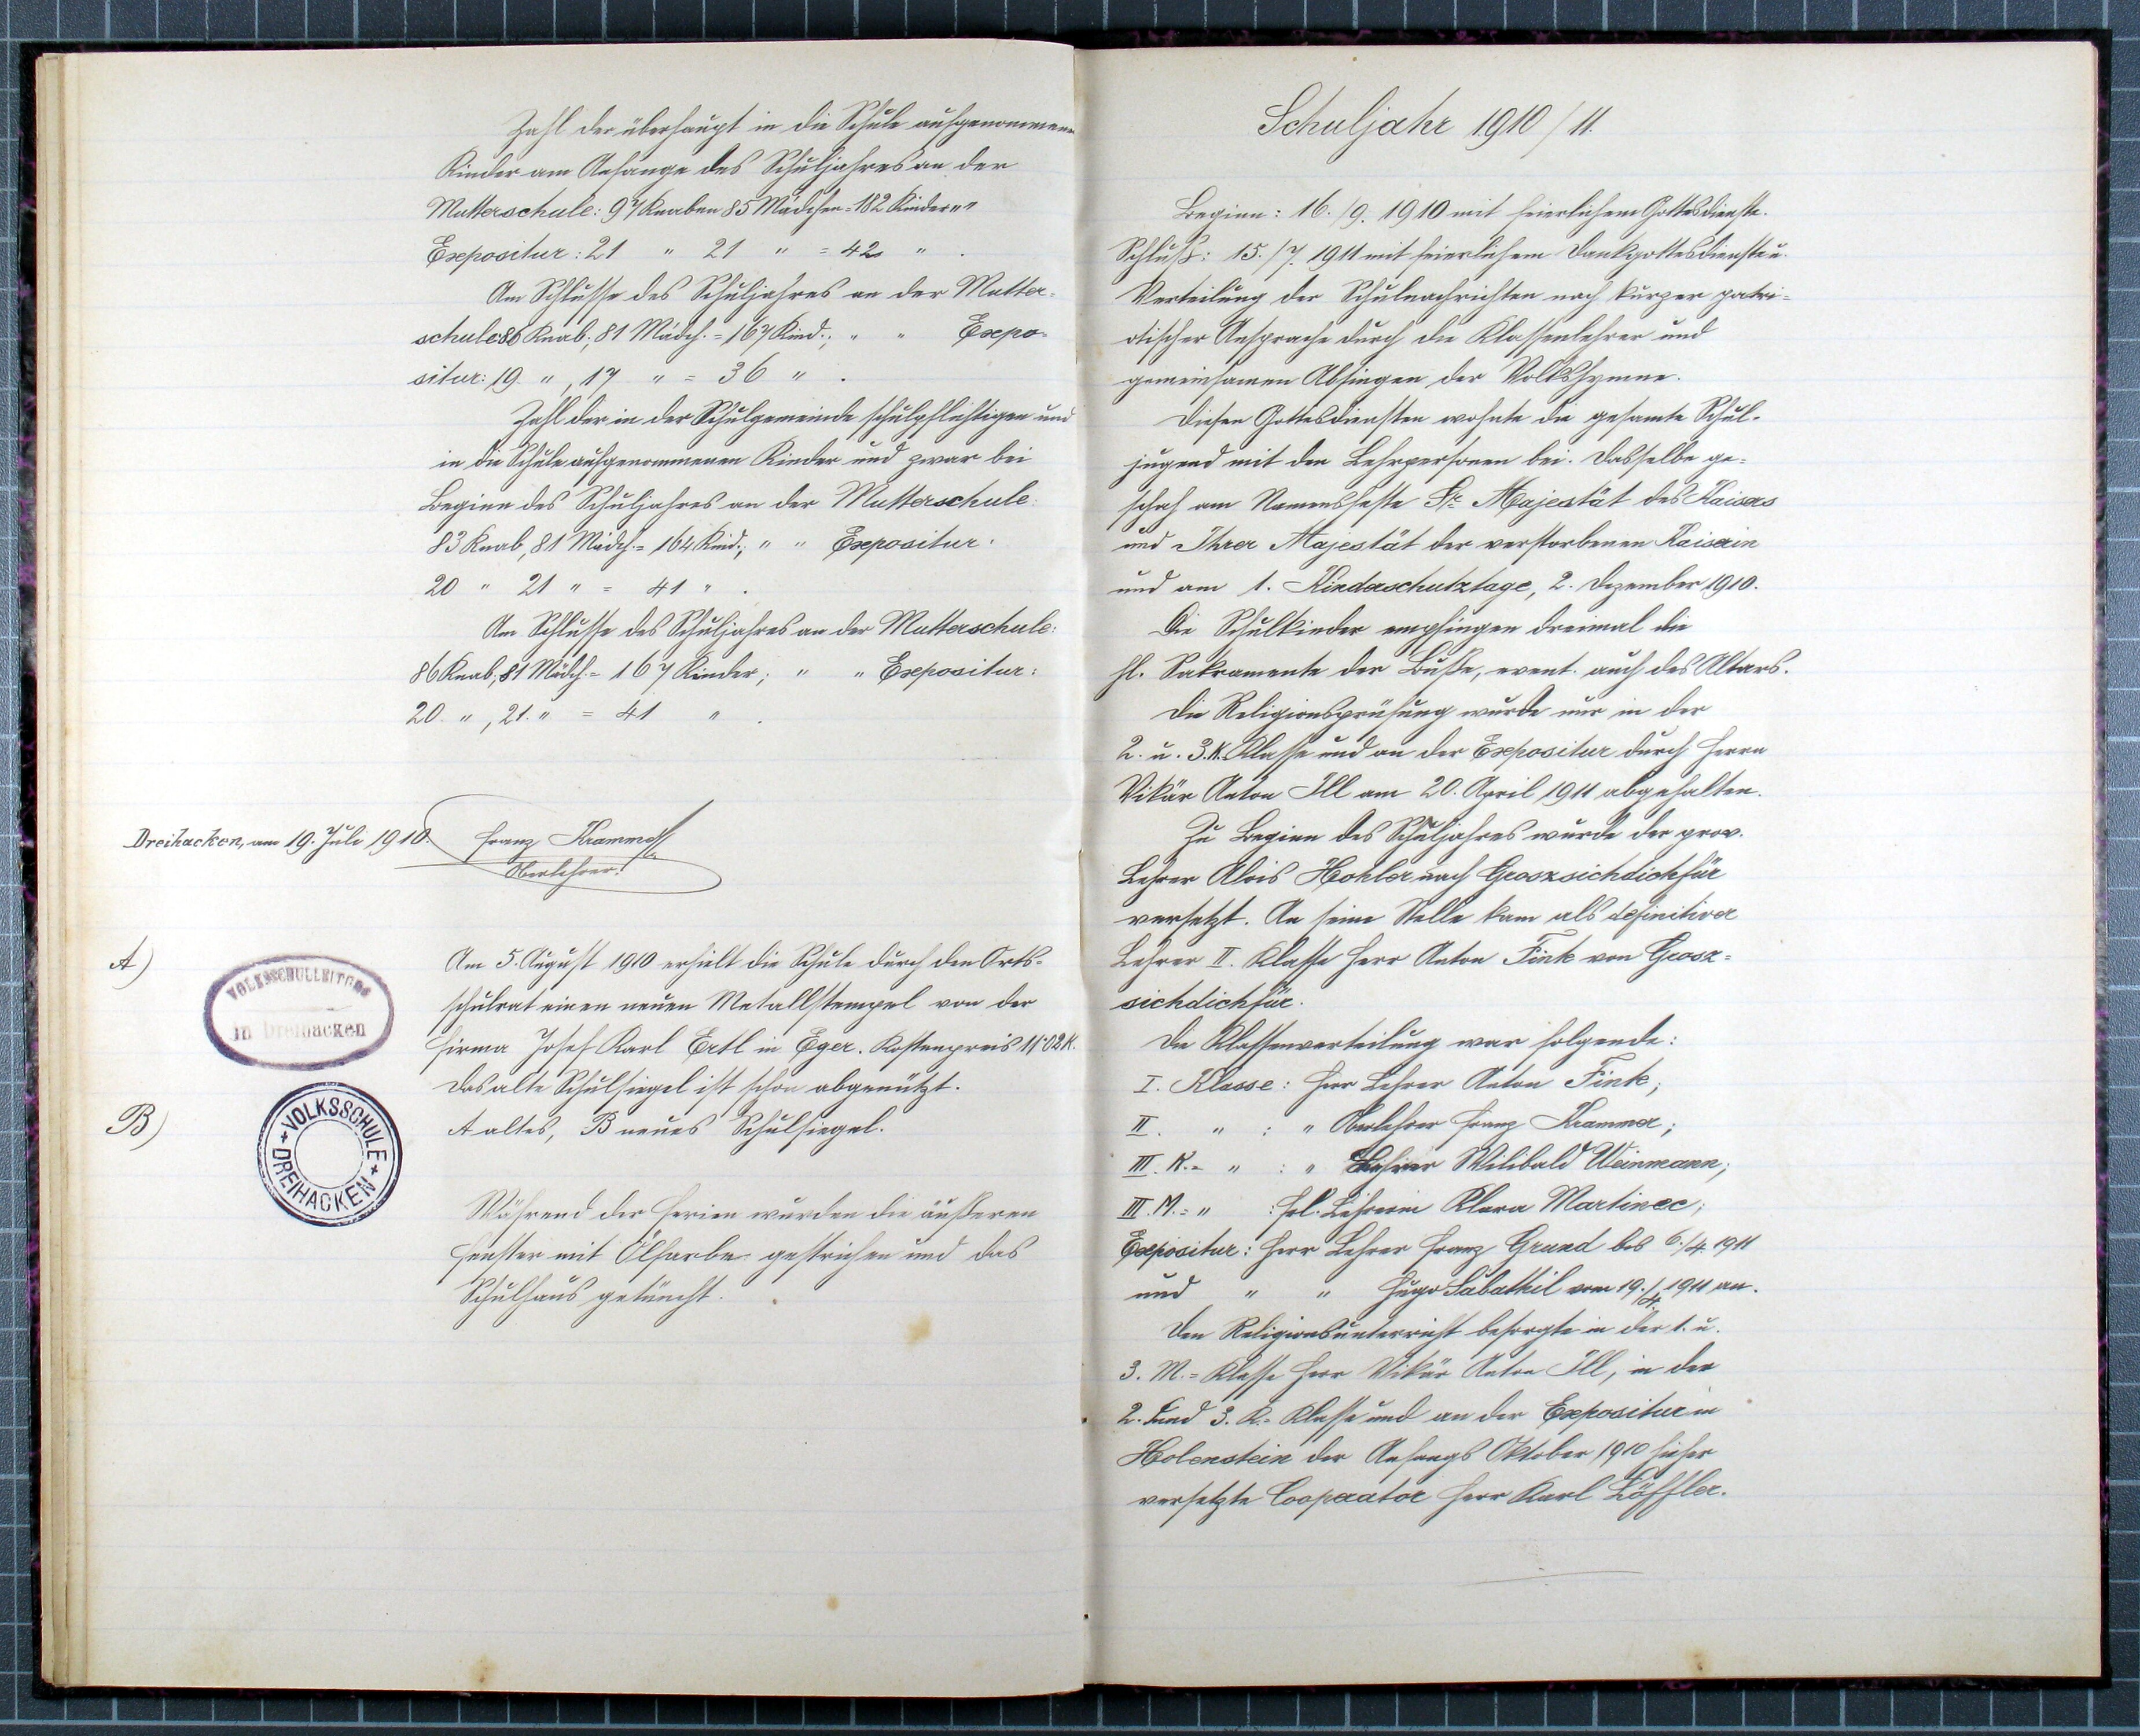 Zahl der überhaupt in die Schule aufgenommenen
Kinder am Anfange des Schuljahres an der
Mutterschule: 97 Knaben 85 Mädchen = 182 Kinder " "
Expositur: 21 " 21 " = 42 " .
Am Schlusse des Schuljahres an der Mutter-
schule 86 Knab.; 81 Mädch. = 167 Kind.; " " Expo-
situr: 19 " , 17 " = 36 " .
Zahl der in der Schulgemeinde schulpflichtigen und
in die Schule aufgenommenen Kinder und zwar bei
Beginn des Schuljahres an der Mutterschule:
83 Knab., 81 Mädch. = 164 Kind.; " " Expositur:
20 " 21 " = 41 " .
Am Schlusse des Schuljahres an der Mutterschule:
86 Knab.; 81 Mädch. = 167 Kinder; " " Expositur:
20 " , 21 " = 41 " .
Dreihacken, am 19. Juli 1910. Franz Krammer
Oberlehrer.
A)
VOLKSSCHULLEITUNG
in Dreihacken
Am 5. August 1910 erhielt die Schule durch den Orts-
schulrat einen neuen Metallstempel von der
Firma Josef Karl Ertl in Eger. Kostenpreis 11·02 K.
Das alte Schulsiegel ist schon abgenützt.
B)
VOLKSSCHULE
DREIHACKEN
A altes, B neues Schulsiegel.
Während der Ferien wurden die äußeren
Fenster mit Ölfarbe gestrichen und das
Schulhaus getüncht.
Schuljahr 1910/11.
Beginn: 16./9. 1910 mit feierlichem Gottesdienste.
Schluß: 15./7. 1911 mit feierlichem Dankgottesdienste u.
Verteilung der Schulnachrichten nach kurzer patri-
otischer Ansprache durch die Klassenlehrer und
gemeinsamen Absingen der Volkshymne.
Diesen Gottesdiensten wohnte die gesamte Schul-
jugend mit den Lehrpersonen bei. Dasselbe ge-
schah am Namensfeste Sr. Majestät des Kaisers
und Ihrer Majestät der verstorbenen Kaiserin
und am 1. Kinderschutztage, 2. Dezember 1910.
Die Schulkinder empfingen dreimal die
hl. Sakramente der Buße, event. auch des Altars.
Die Religionsprüfung wurde nur in der
2. u. 3. K. Klasse und an der Expositur durch Herrn
Vikär Anton Ill am 20. April 1911 abgehalten.
Zu Beginn des Schuljahres wurde der prov.
Lehrer Alois Hohler nach Groszsichdichfür
versetzt. An seine Stelle kam als definitiver
Lehrer II. Klasse Herr Anton Fink von Grosz-
sichdichfür.
Die Klassenverteilung war folgende:
I. Klasse: Herr Lehrer Anton Fink;
II. " : " Oberlehrer Franz Krammer;
III. K.- " : " Lehrer Wilibald Weinmann;
III. M.- " : Frl. Lehrerin Klara Martinec;
Expositur: Herr Lehrer Franz Grund bis 6./4. 1911
und " " Hugo Sabathil vom 19./4. 1911 an.
Den Religionsunterricht besorgte in der 1. u.
3. M.- Klasse Herr Vikär Anton Ill, in der
2. und 3. K.- Klasse und an der Expositur in
Holenstein der Anfangs Oktober 1910 hieher
versetzte Cooperator Herr Karl Löffler.